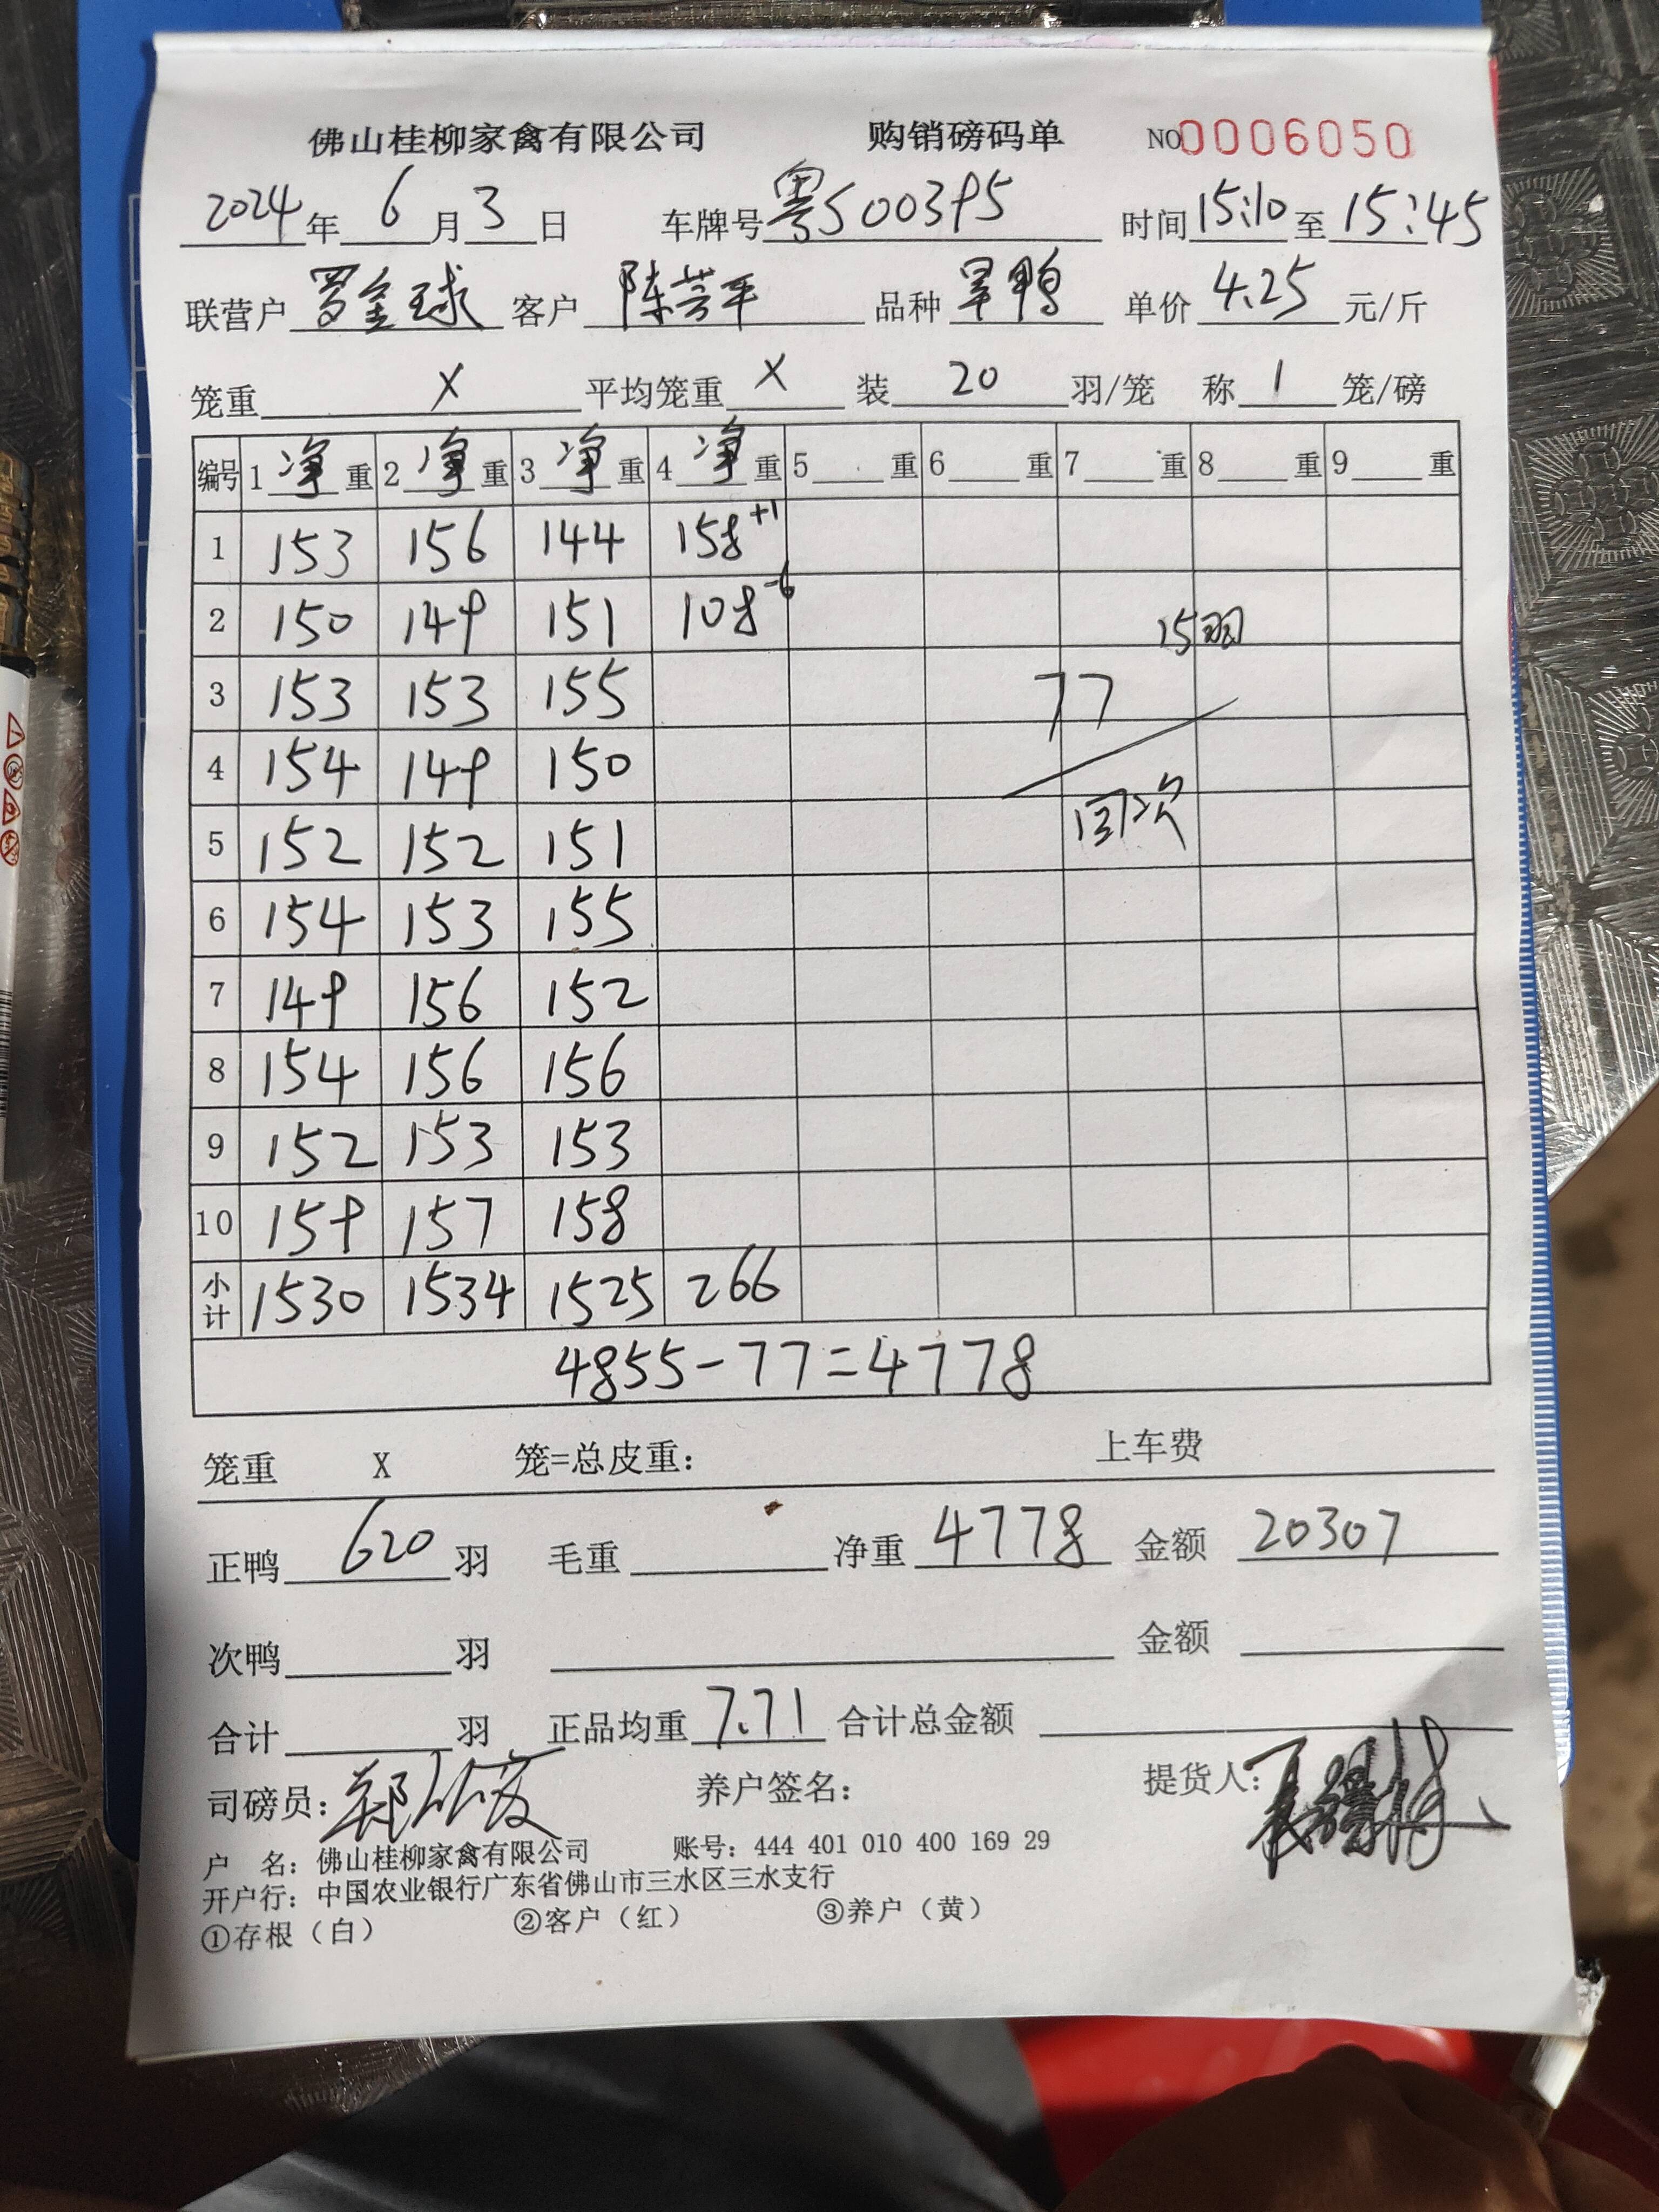 佛山桂柳家禽有限公司 购销磅码单 NO0006050
2024年6月3日 车牌号粤S00395 时间15:10至15:45
联营户罗金球 客户陈芸平 品种旱鸭 单价4.25元/斤
笼重 X 平均笼重 X 装 20 羽/笼 称 1 笼/磅
编号 1净重 2净重 3净重 4净重 5 重 6 重 7 重 8 重 9 重
1 153 156 144 158+1
2 150 149 151 108-6 15羽
3 153 153 155 77
4 154 149 150
5 152 152 151 回次
6 154 153 155
7 149 156 152
8 154 156 156
9 152 153 153
10 159 157 158
小计 1530 1534 1525 266
4855-77=4778
笼重 X 笼=总皮重: 上车费
正鸭 620 羽 毛重 净重 4778 金额 20307
次鸭 羽 金额
合计 羽 正品均重 7.71 合计总金额
司磅员: 养户签名: 提货人:
户 名: 佛山桂柳家禽有限公司 账号: 444 401 010 400 169 29
开户行: 中国农业银行广东省佛山市三水区三水支行
①存根(白) ②客户(红) ③养户(黄)